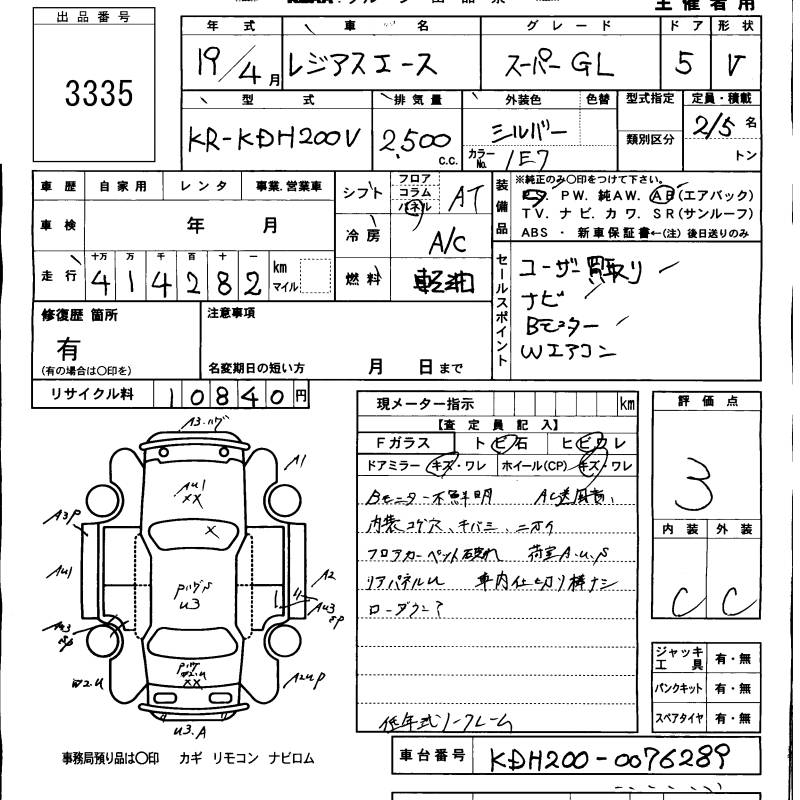 主催者用
出品番号
3335
年式 車名 グレード ドア 形状
19/4月 レジアスエース スーパーGL 5 V
型式 排気量 外装色 色替 型式指定 定員・積載
KR-KDH200V 2,500 c.c. シルバー 類別区分 2/5名
カラーNo. 1E7 トン
車歴 自家用 レンタ 事業.営業車 シフト フロア コラム パネル AT
装備品 ※純正のみ〇印をつけて下さい。
PW. 純AW. AB(エアバック)
TV. ナビ. カワ. SR(サンルーフ)
ABS ・ 新車保証書←(注) 後日送りのみ
車検 年 月 冷房 A/C
走行 十万 万 千 百 十 一
414282 km マイル 燃料 軽油
セールスポイント
ユーザー買取り
ナビ
Bモニター
Wエアコン
修復歴 箇所 注意事項
有
(有の場合は〇印を) 名変期日の短い方 月 日まで
リサイクル料 10840円
現メーター指示 km
【査定員記入】
Fガラス トビ石 ヒビワレ
ドアミラー キズ・ワレ ホイール(CP) キズ・ワレ
Bモニター不鮮明
内装コゲ穴、キバミ、ニオイ
フロアカーペット破れ 荷室A.u.S
リアパネルu 車内仕切り棒ナシ
ローダウン?
低年式ノークレーム
評価点
3
内装 外装
C C
A3.
A1
A3P
Au1
××
×
Au1
A2
Au3
u3
8P
××
W2.u
A2uP
u3.A
ジャッキ工具 有・無
パンクキット 有・無
スペアタイヤ 有・無
事務局預り品は〇印 カギ リモコン ナビロム
車台番号 KDH200-0076289